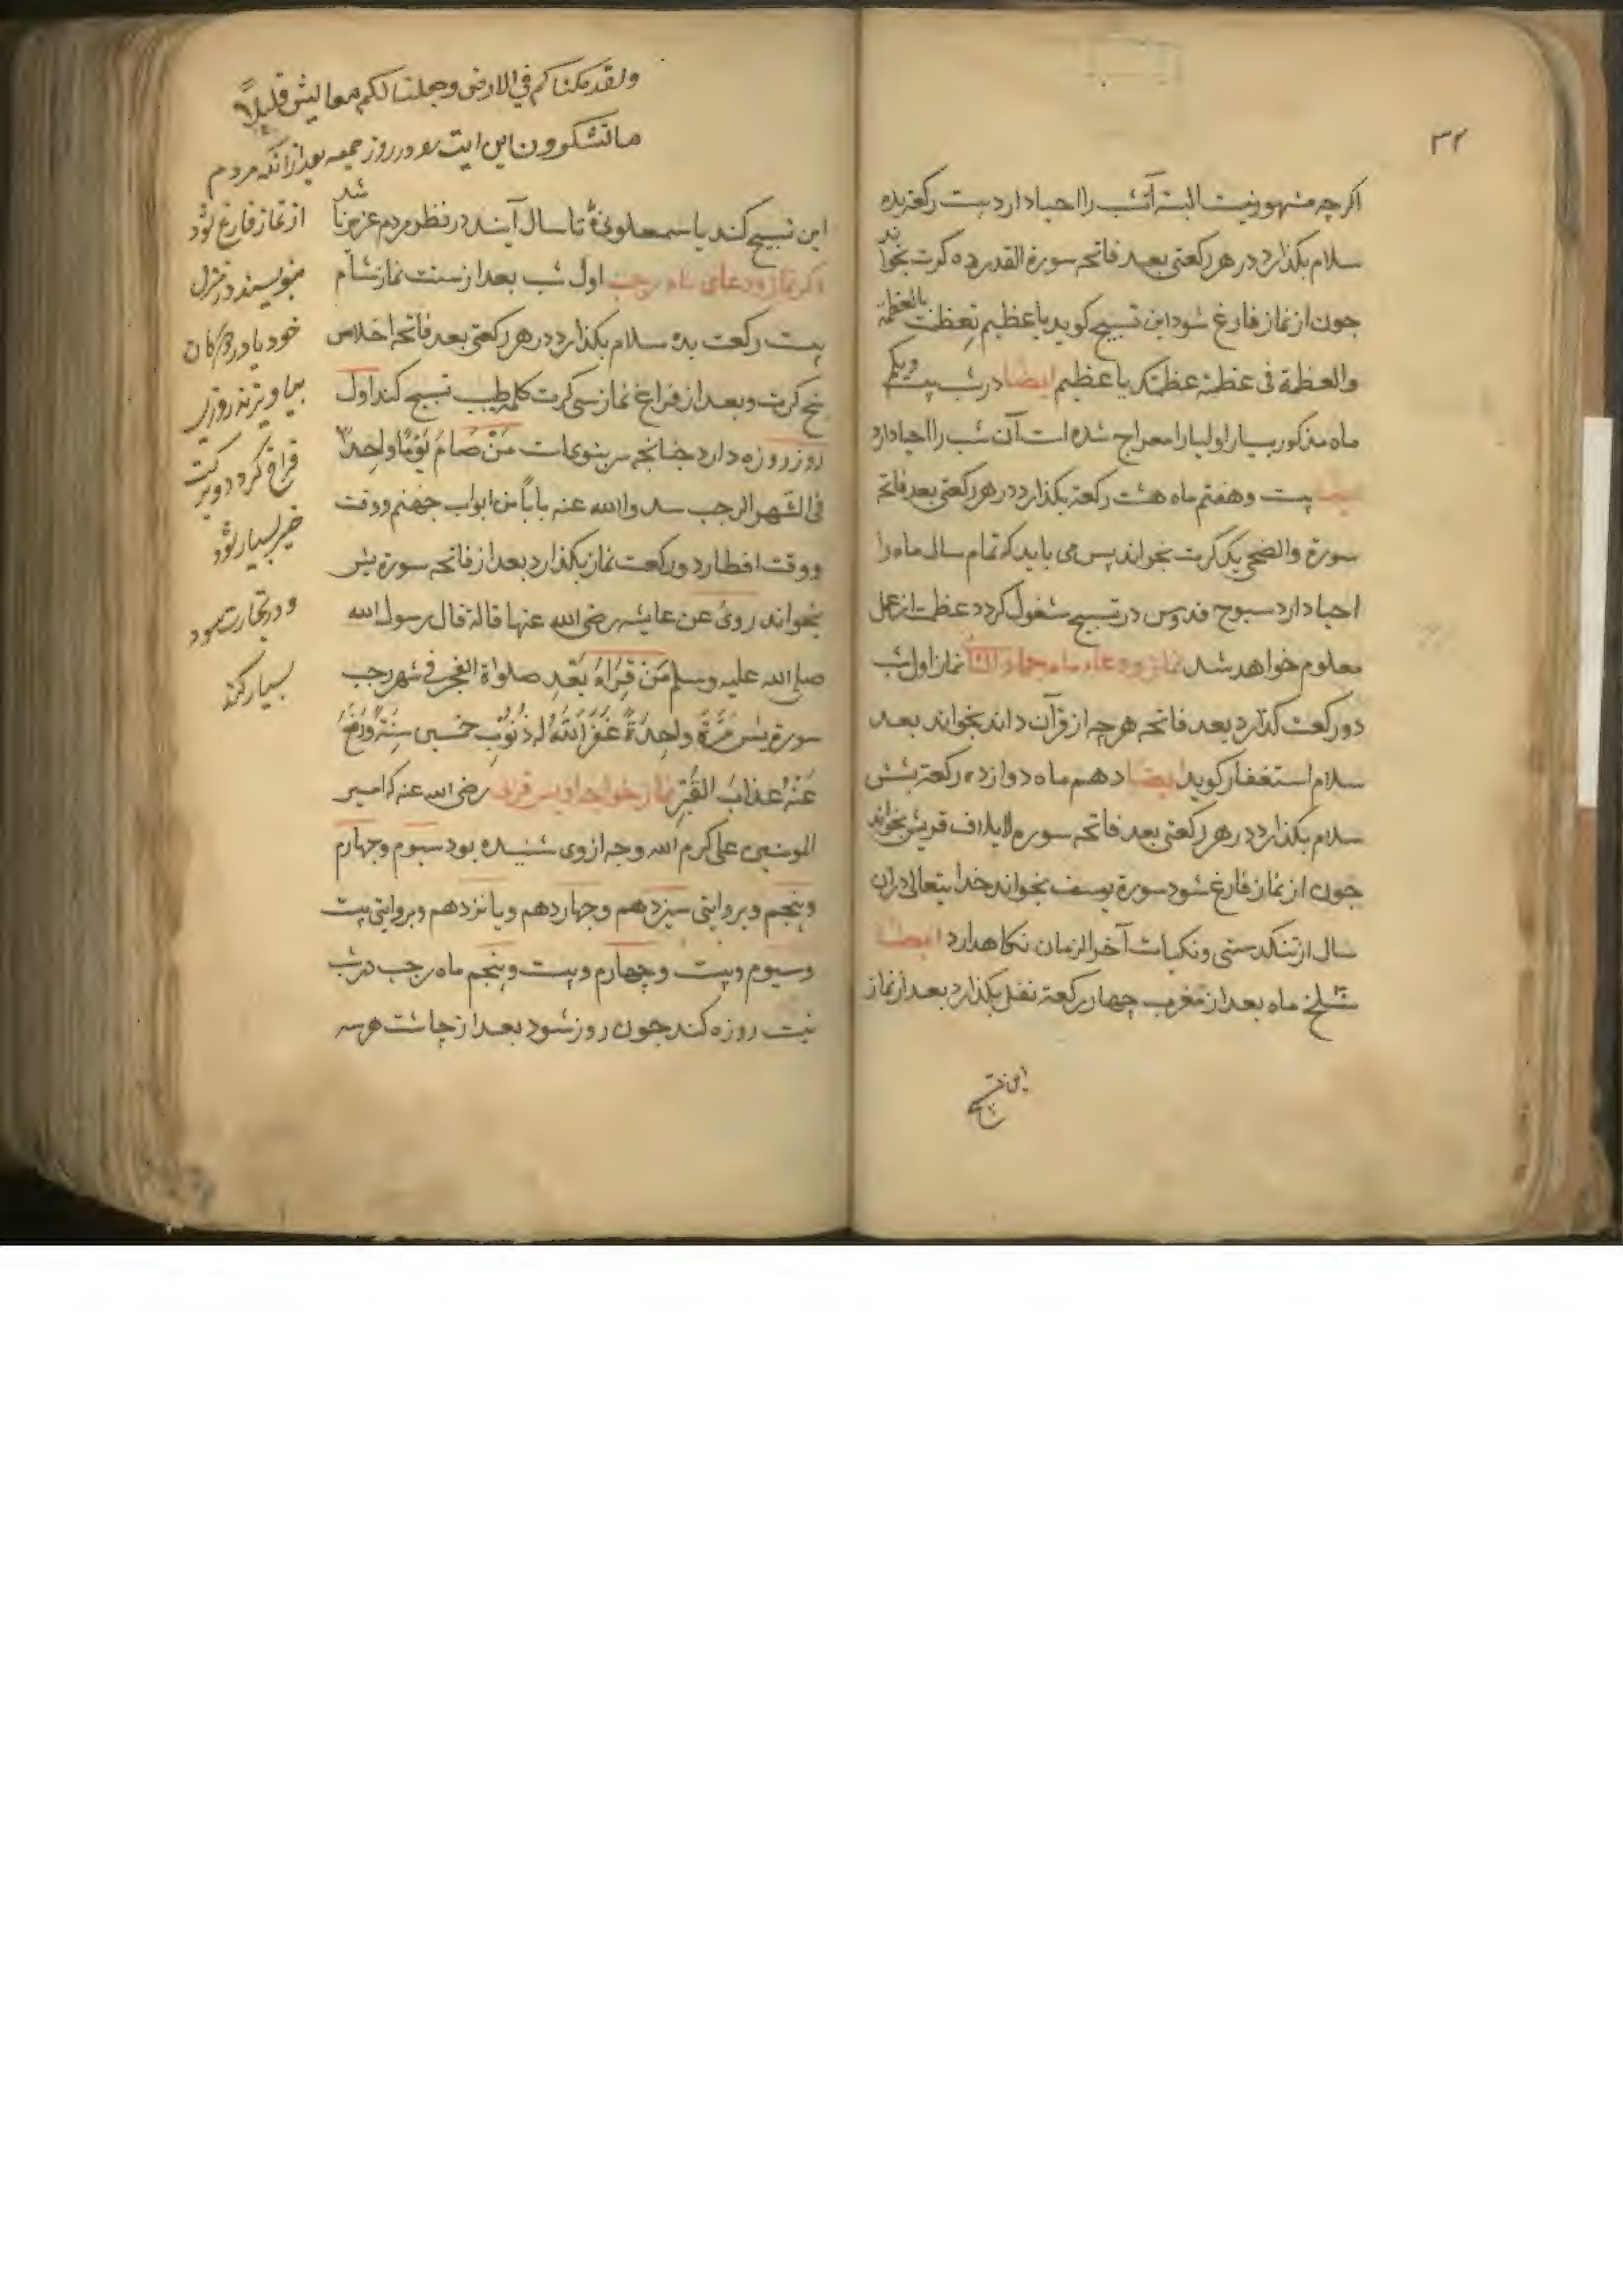 ۳۲
اکرچه مشهور نیست البته آنشب را احیا دارد بیست رکعة بده
سلام بکذارد در هر رکعتی بعد فاتحه سورة القدر ده کرت بخواند
جون از نماز فارغ شود این تسبیح کوید یا عظیم تعظمت بالعظمة
والعظمة فی عظمة عظمتک یا عظیم ایضا در شب بیست ویکم
ماه مذکور بسیار اولیا را معراج شده است آن شب را احیا دارد
ایضا بیست و هفتم ماه هشت رکعة بکذارد در هر رکعتی بعد فاتحه
سورة والضحی یک کرت بخواند پس می باید که تمام سال ماه را
احیا دارد سبوح قدوس در تسبیح مشغول کردد عظمت از عمل
معلوم خواهد شد نماز ودعاء ماه جماد الثا نماز اول شب
دو رکعت کذارد بعد فاتحه هرچه از قرآن داند بخواند بعد
سلام استغفار کوید ایضا دهم ماه دوازده رکعة بشش
سلام بکذارد در هر رکعتی بعد فاتحه سوره لایلاف قریش بخواند
جون از نماز فارغ شود سورة یوسف بخواند خدایتعالی در آن
سال از تنکدستی و نکبات آخر الزمان نکاهدارد ایضا
سلخ ماه بعد از مغرب چهار رکعة نفل بکذارد بعد از نماز
این تسبیح
ولقد مکناکم فی الارض وجعلنا لکم معایش قلیلاً
ما تشکرون این ایت رو در روز جمعه بعد از انکه مردم
از نماز فارغ شود
بنویسند در منزل
خود یا در دکان
فراخ کردد و برکت
خیر بسیار شود
و در تجارت سود
بسیار کند
این تسبیح کند یا سمعلونیۀ تا سال آینده در نظر مردم عزیز باشد
ذکر نماز ودعای ماه رجب اول شب بعد از سنت نماز شام
بیست رکعت بده سلام بکذارد در هر رکعتی بعد فاتحه اخلاص
پنج کرت و بعد از فراغ نماز سی کرت کلمه طیب تسبیح کند اول
روز روزه دارد جنانجه مر بنوی است مَنْ صَامَ یَوْمًا واحِداً
فی الشهر الرجب سد والله عنه باباً من ابواب جهنم ووقت
ووقت افطار دو رکعت نماز بکذارد بعد از فاتحه سورة یس
بخواند روی عن عایشه رضی الله عنها قالة قال رسول الله
صلی الله علیه وسلم مَن قَرَاءَ بَعْد صلواة الفجر فی شهر رجب
سورة یس مَرَّةً واحِدَةً غَفَرَ اللهُ له ذُنُوبِ خمسین سنة وَرَفَعَ
عَنْهُ عذابَ القَبْرِ نماز خواجه اویس قرنی رضی الله عنه که امیر
المومنین علی کرم الله وجه از وی شنیده بود سیوم و چهارم
وپنجم وبروایتی سیزدهم وجهاردهم وپانزدهم وبروایتی بیست
وسیوم وبیست وچهارم وبیست وپنجم ماه رجب در شب
نیت روزه کند جون روز شود بعد از چاشت هر سه